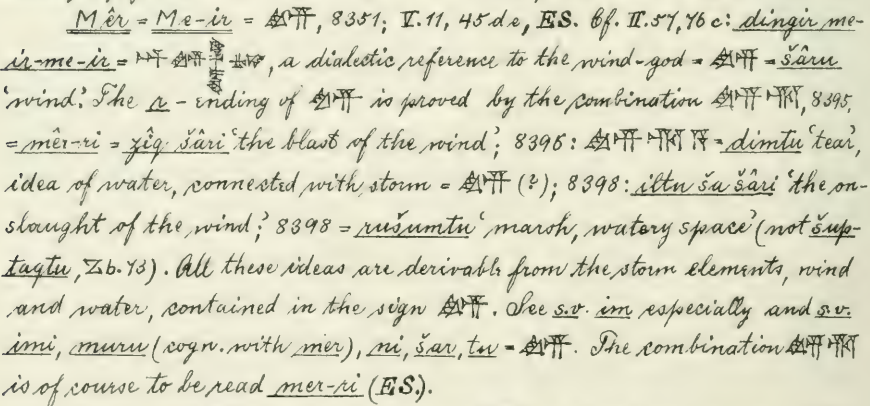 Mêr = Me-ir = 𒅎, 8351; V. 11, 45 de, ES. Cf. II. 57, 76 c: dingir me-
ir-me-ir = 𒀭𒅎, a dialectic reference to the wind-god = 𒅎 = šâru
'wind'. The r-ending of 𒅎 is proved by the combination 𒅎𒊑, 8395,
= mêr-ri = zîq šâri 'the blast of the wind'; 8396: 𒅎𒊑𒀀 = dimtu 'tear',
idea of water, connected with storm = 𒅎 (?); 8398: iltu ša šâri 'the on-
slaught of the wind'; 8398 = rušumtu 'marsh, watery space' (not šup-
taqtu, Zb. 73). All these ideas are derivable from the storm elements, wind
and water, contained in the sign 𒅎. See s.v. im especially and s.v.
imi, muru (cogn. with mer), ni, šar, tu = 𒅎. The combination 𒅎𒊑
is of course to be read mer-ri (ES.).